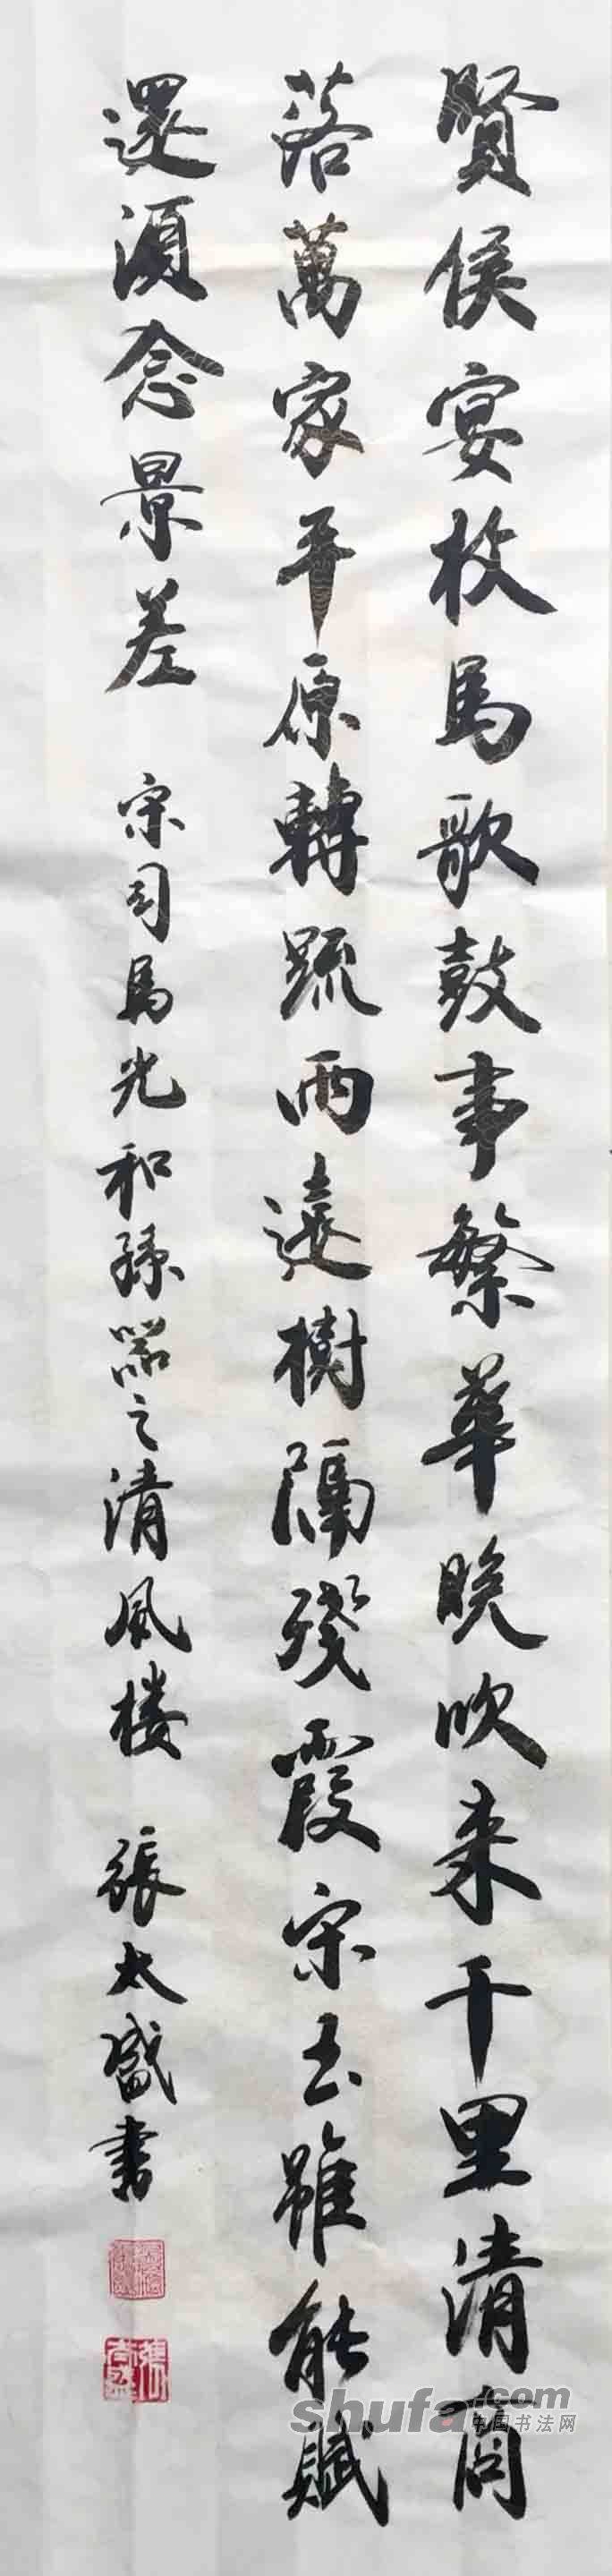 賢侯宴枚馬歌鼓事繁華晚吹来千里清商
落萬家平原轉疏雨遠樹隔殘霞宋玉雖能賦
還須念景差 宋司馬光和孫器之清風楼 張太盛書
shufa.com
中国书法网